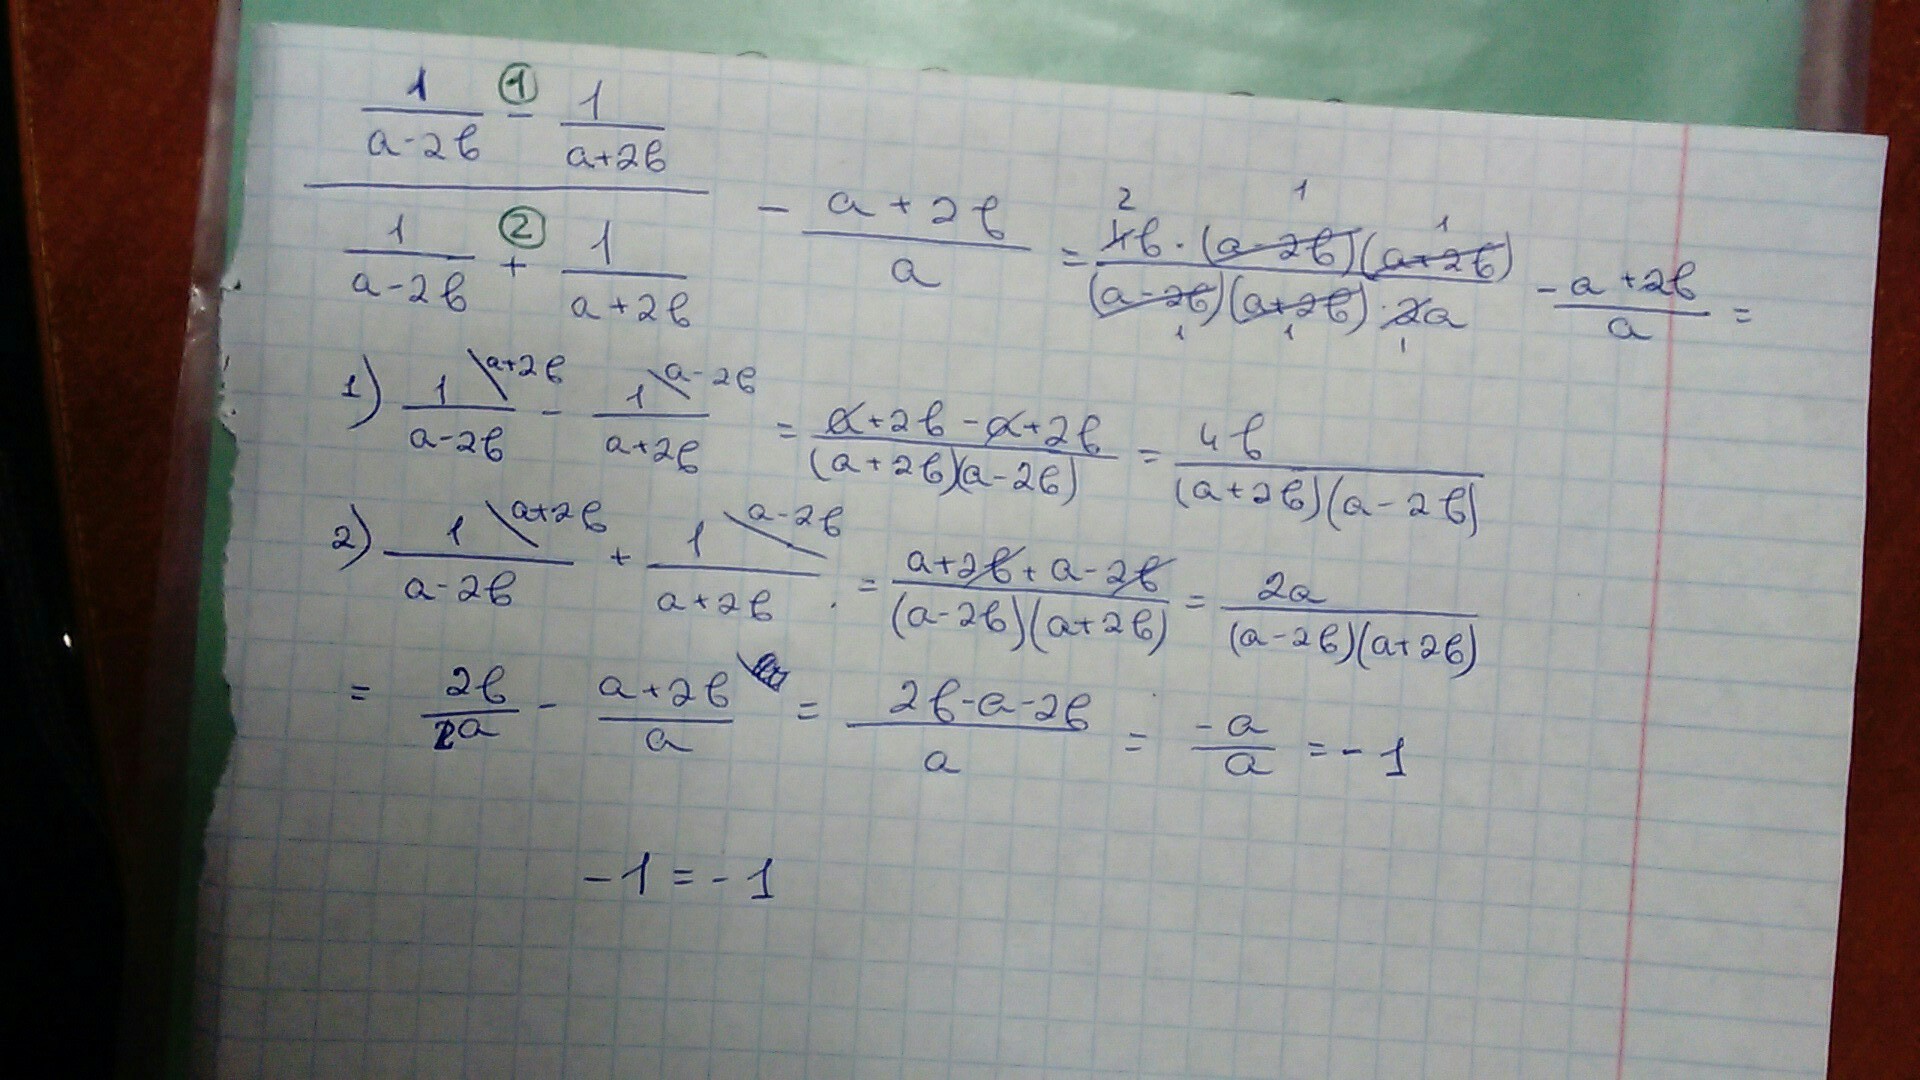 (1/(a-2b) ①- 1/(a+2b)) / (1/(a-2b) ②+ 1/(a+2b)) - (a+2b)/a = (4b·(a-2b)(a+2b))/((a-2b)(a+2b)·2a) - (a+2b)/a =
2 1 1
1 1 1
1) 1/(a-2b) \a+2b - 1/(a+2b) \a-2b = (a+2b-a+2b)/((a+2b)(a-2b)) = 4b/((a+2b)(a-2b))
2) 1/(a-2b) \a+2b + 1/(a+2b) \a-2b = (a+2b+a-2b)/((a-2b)(a+2b)) = 2a/((a-2b)(a+2b))
= 2b/a - (a+2b)/a = (2b-a-2b)/a = -a/a = -1
-1 = -1